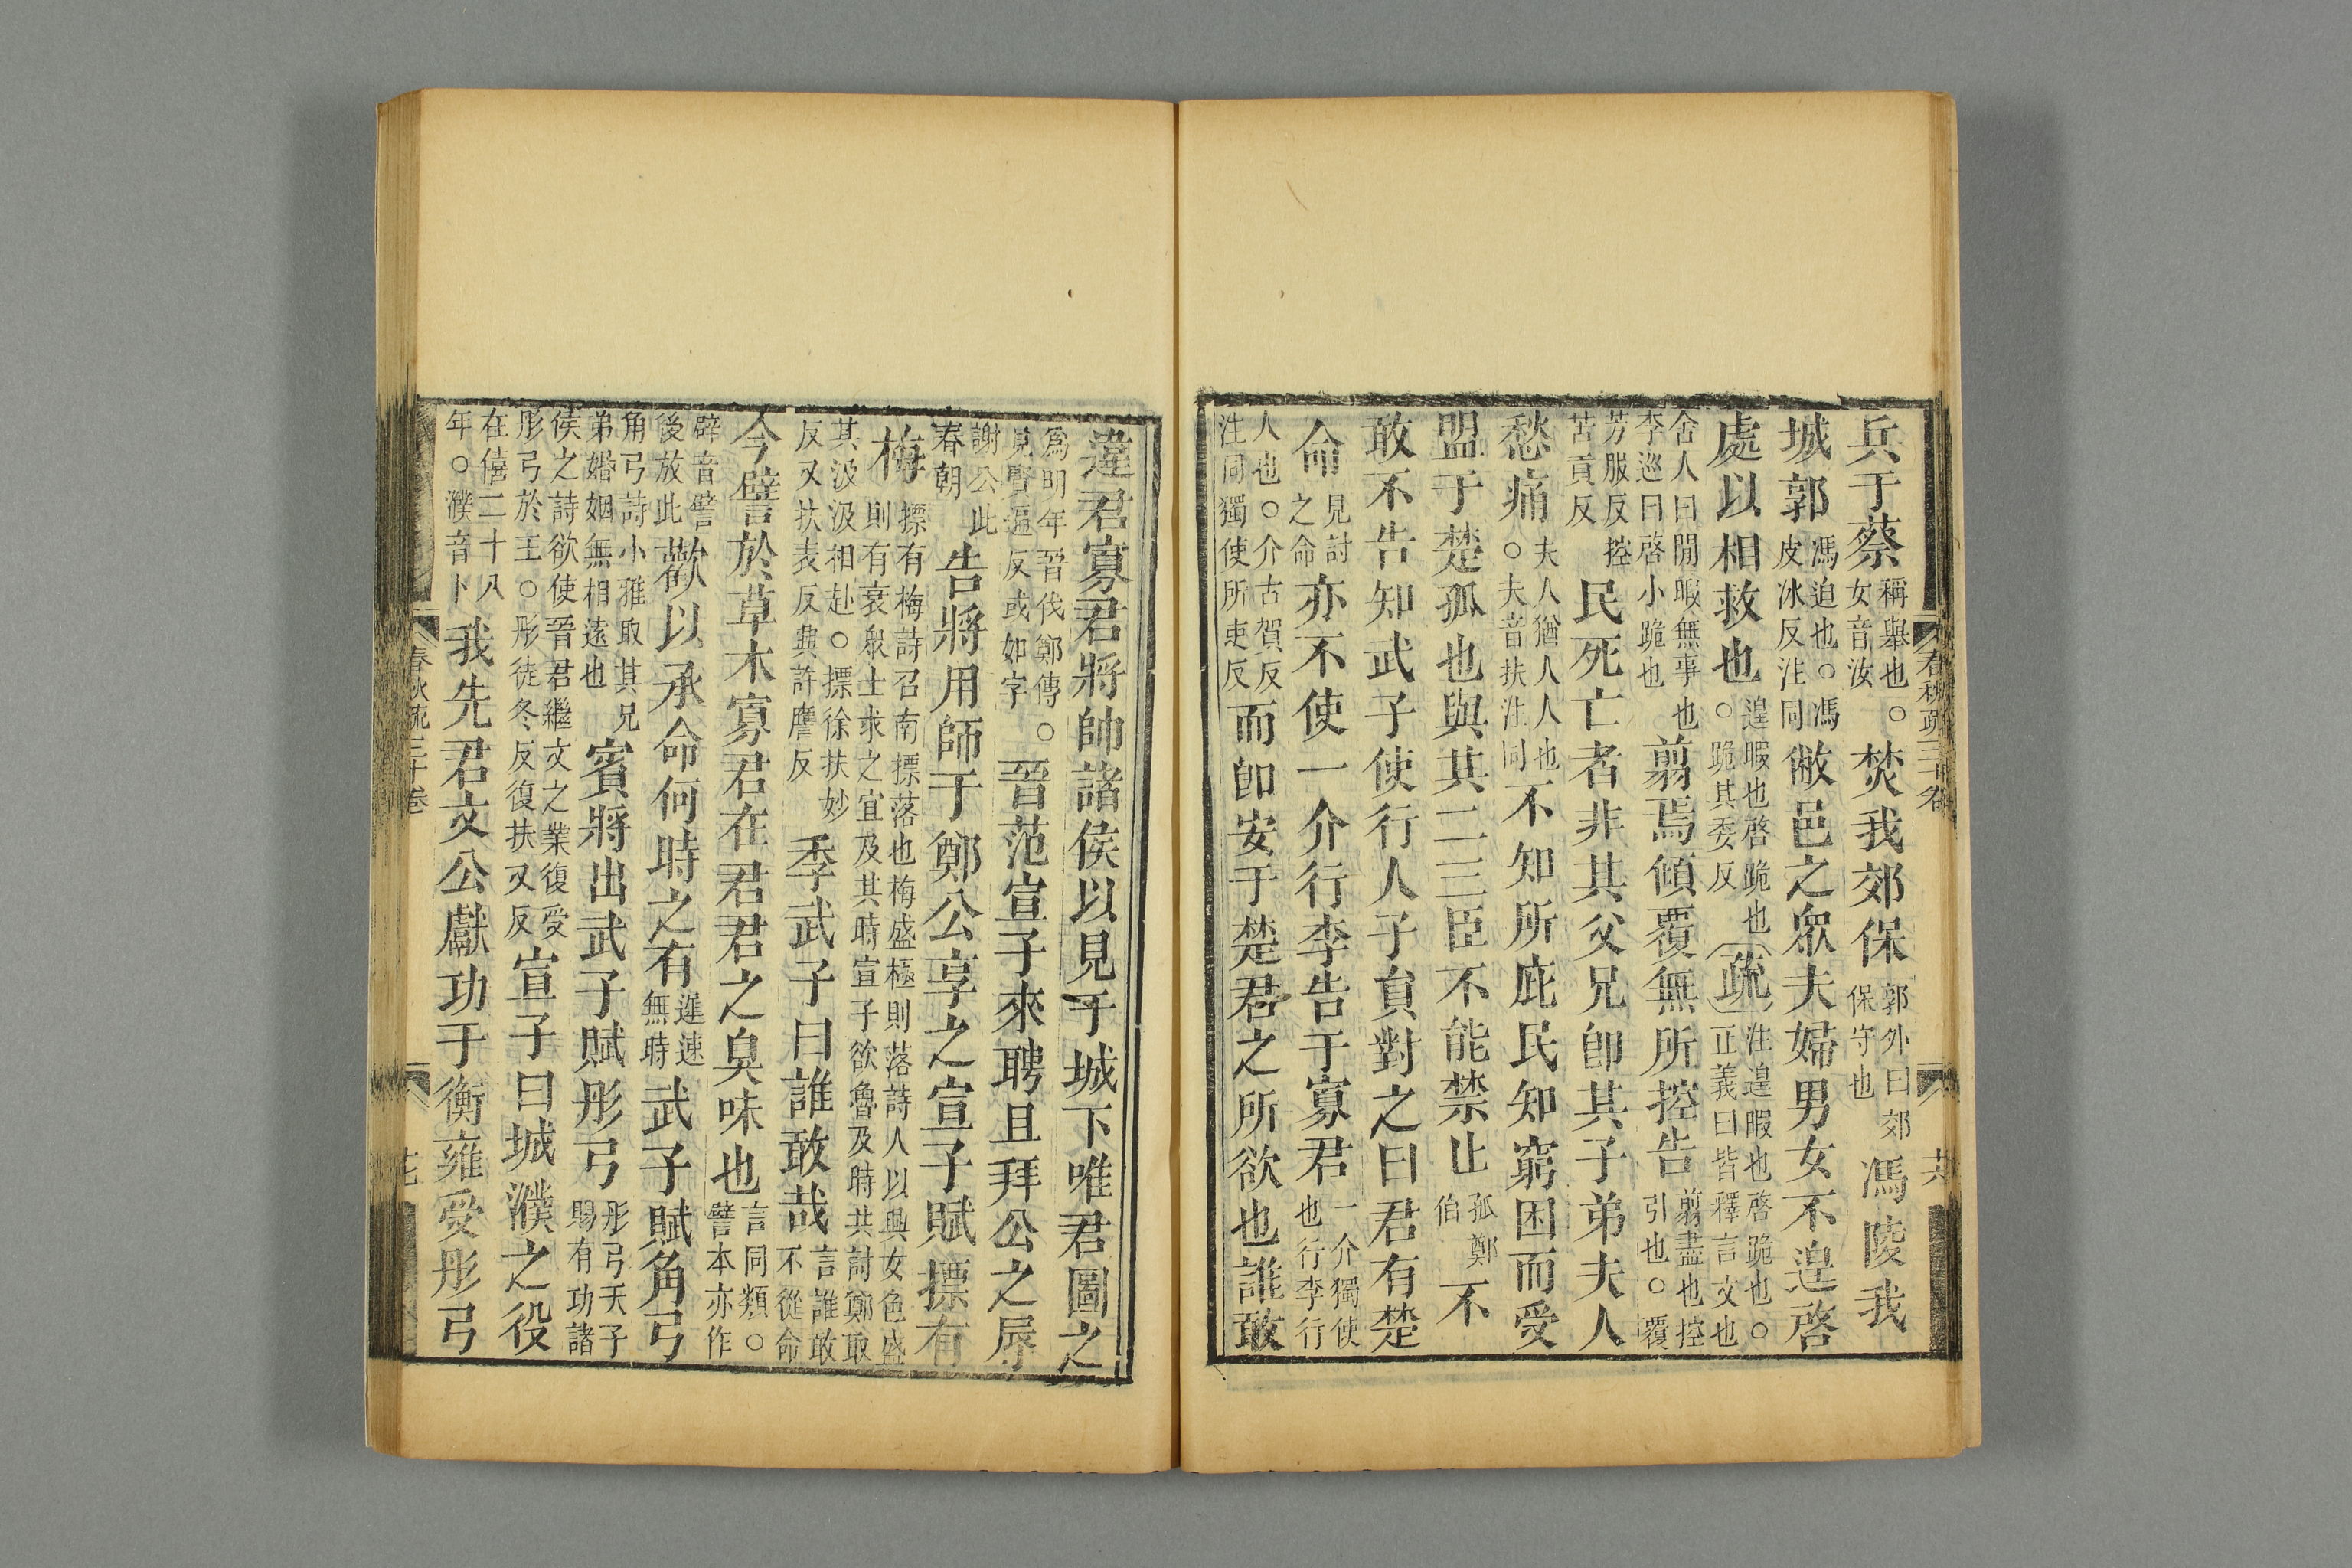 春秋疏三十卷
兵于蔡稱舉也○女音汝焚我郊保郭外曰郊保守也馮陵我
城郭馮迫也○馮皮冰反注同敝邑之眾夫婦男女不遑啓
處以相救也遑暇也啓跪也○跪其委反疏注遑暇也啓跪也○正義曰皆釋言文也
舍人曰閒暇無事也李巡曰啓小跪也翦焉傾覆無所控告翦盡也控引也○覆
芳服反控苦貢反民死亡者非其父兄卽其子弟夫人
愁痛夫人猶人人也○夫音扶注同不知所庇民知窮困而受
盟于楚孤也與其二三臣不能禁止孤鄭伯不
敢不告知武子使行人子員對之曰君有楚
命見討之命亦不使一介行李告于寡君一介獨使也行李行
人也○介古賀反注同獨使所吏反而卽安于楚君之所欲也誰敢
違君寡君將帥諸侯以見于城下唯君圖之
爲明年晉伐鄭傳○見賢遍反或如字晉范宣子來聘且拜公之辱
謝公此春朝告將用師于鄭公享之宣子賦摽有
梅摽有梅詩召南摽落也梅盛極則落詩人以興女色盛則有衰眾士求之宜及其時宣子欲魯及時共討鄭取
其汲汲相赴○摽徐扶妙反又扶表反興許譍反季武子曰誰敢哉言誰敢不從命
今譬於草木寡君在君君之臭味也言同類○譬本亦作
辟音譬後放此歡以承命何時之有遲速無時武子賦角弓
角弓詩小雅取其兄弟婚姻無相遠也賓將出武子賦彤弓彤弓天子賜有功諸
侯之詩欲使晉君繼文之業復受彤弓於王○彤徒冬反復扶又反宣子曰城濮之役
在僖二十八年○濮音卜我先君文公獻功于衡雍受彤弓
春秋疏三十卷